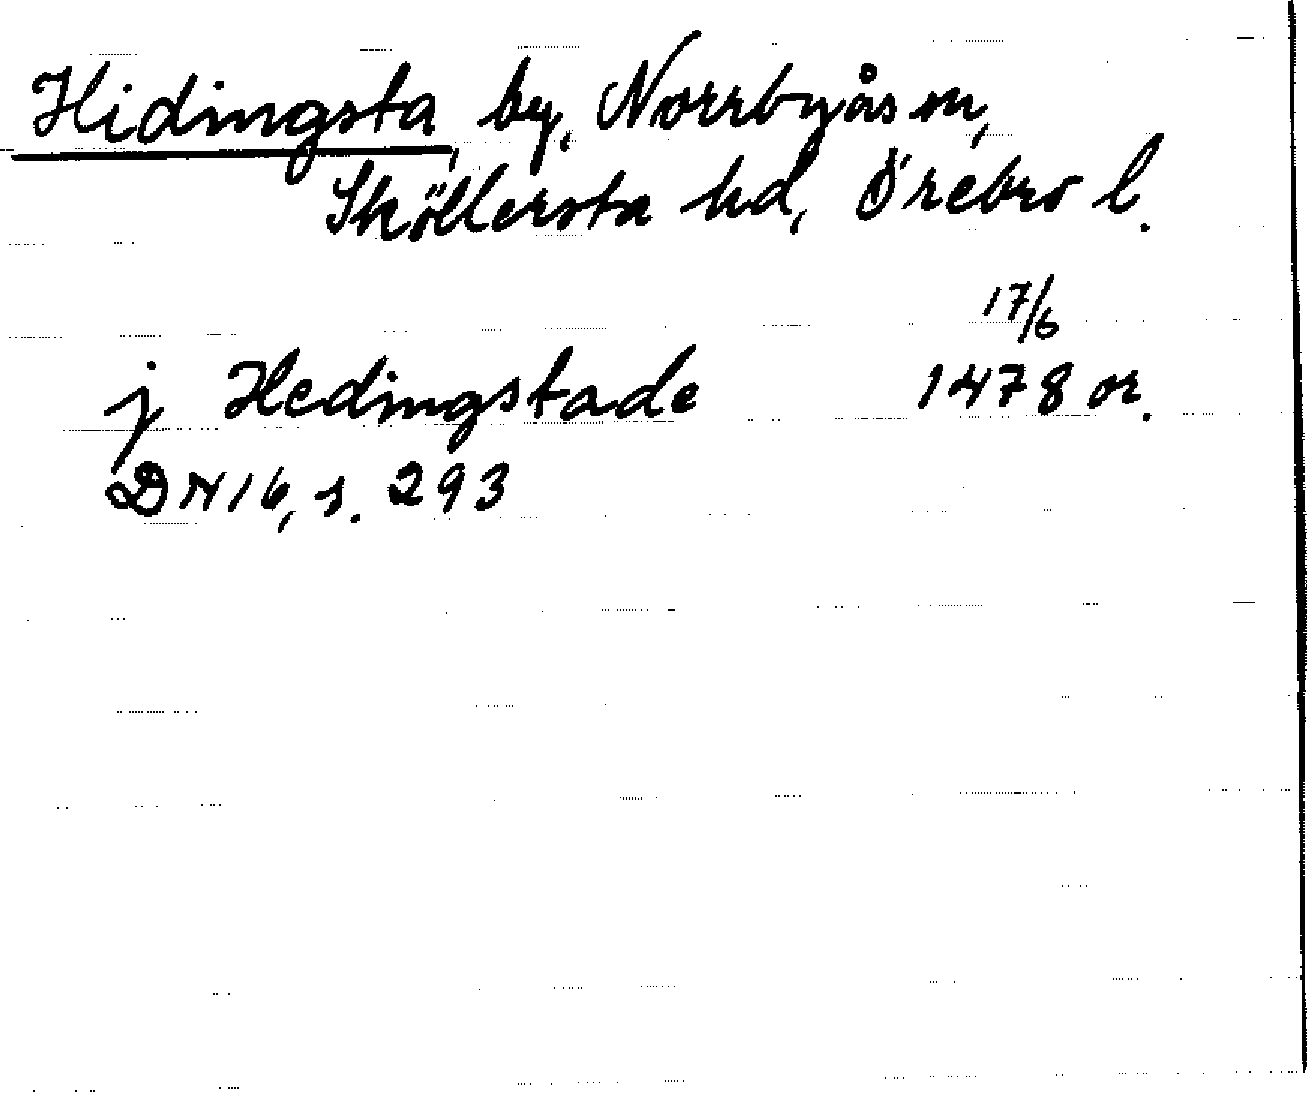 Hidingsta, by, Norrbyås sn,
Sköllersta hd, Örebro l.
17/6
j Hedingstade 1478 or.
DN 16, s. 293